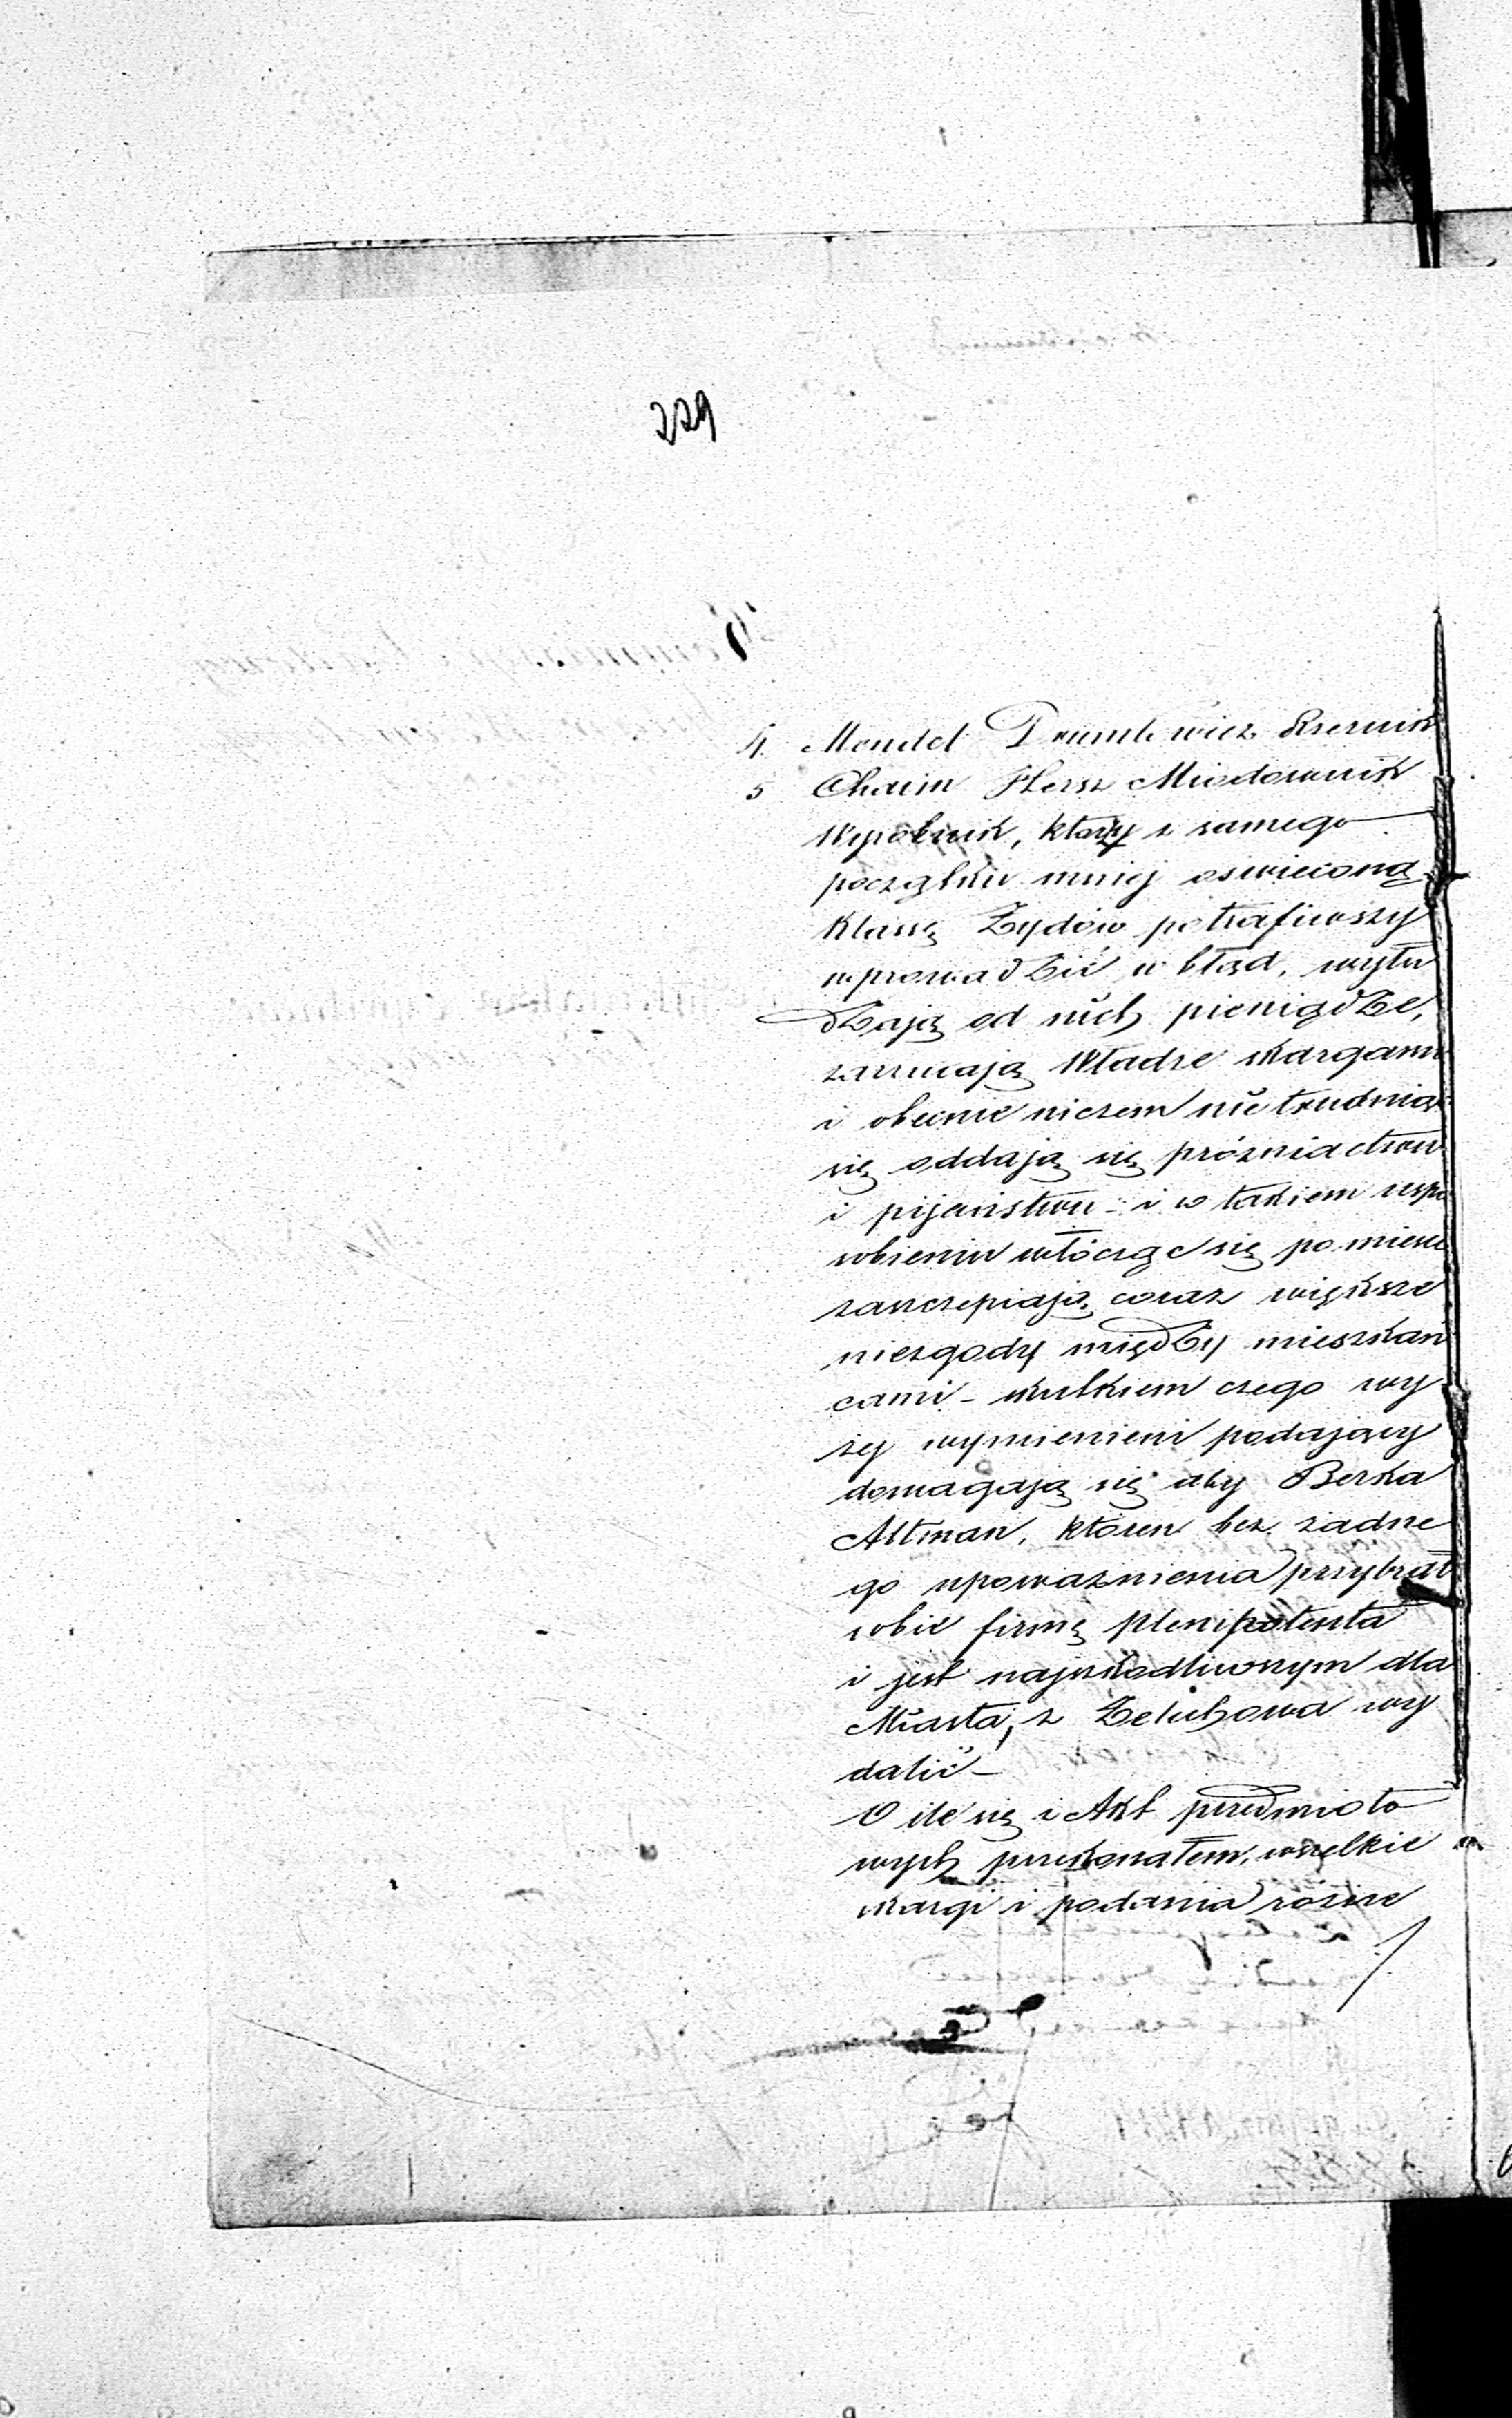 229
4. Mendel Rzeznik
5 Chaim Hersz Miodownik
Wyrobnik, którzy z samego
początku mniej oswieconą
Klassę Żydów potrafiwszy
wprowadzić w błąd, wyłu
dzają od nich pieniądze,
zarzucają Władze skargami
i obecnie niczem nie trudniąc
się oddają się próżniactwu
i pijaństwu - i w takiem uspo
sobieniu włócząc się po mieście
zaszczepiają coraz większe
niezgody między mieszkań
cami - skutkiem czego wy
żej wymienieni podający
domagają się aby Berka
Altman, któren bez żadne
go upoważnienia przybrał
sobie firmę plenipotenta
i jest najszkodliwszym dla
Miasta, z Żelichowa wy
dalić -
O ile się z Akt przedmioto
wych przekonałem, wszelkie
skargi i podania różne